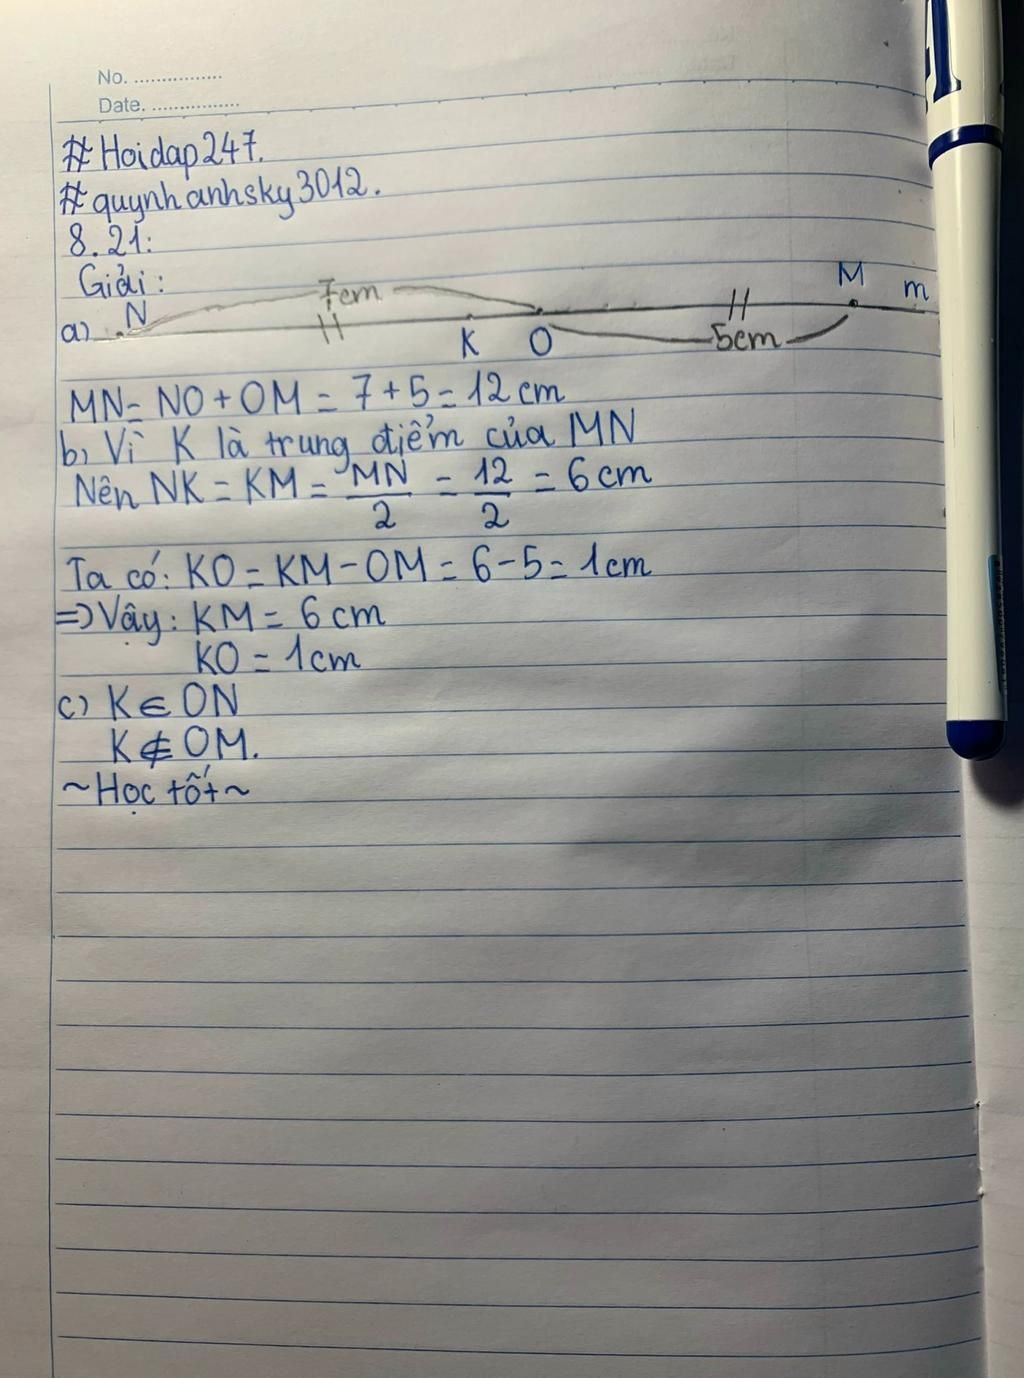 No. ................
Date. ................
#Hoidap247.
#quynhanhsky3012.
8.21:
Giải:
7cm
M
m
a) N
K O
5cm
MN = NO + OM = 7 + 5 = 12 cm
b) Vì K là trung điểm của MN
Nên NK = KM = MN/2 = 12/2 = 6 cm
Ta có: KO = KM - OM = 6 - 5 = 1 cm
=> Vậy: KM = 6 cm
KO = 1cm
c) K ∈ ON
K ∉ OM.
~Học tốt~